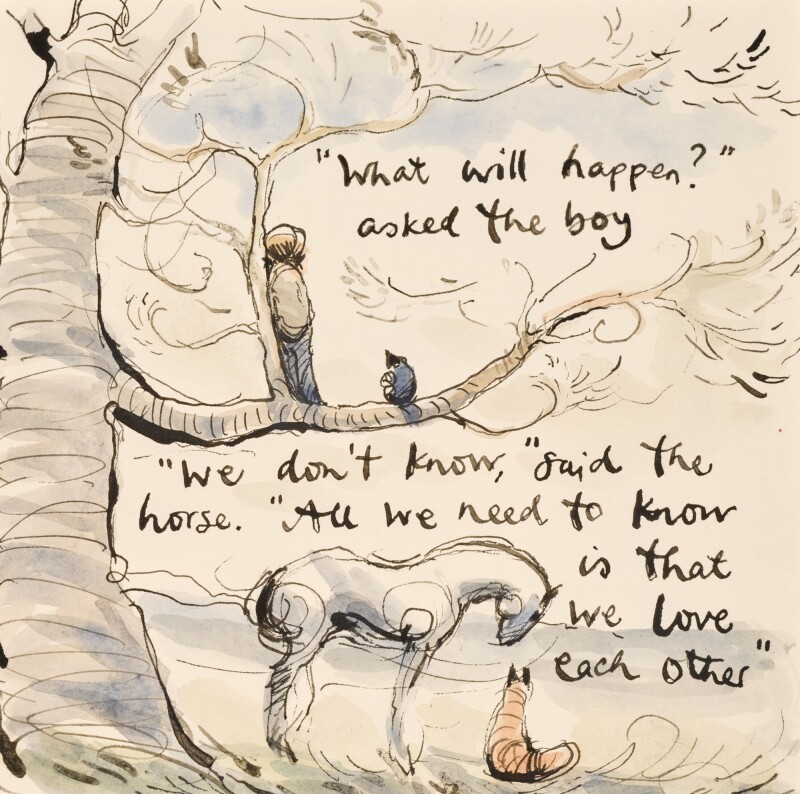 "What will happen?"
asked the boy
"We don't know," said the
horse. "All we need to know
is that
we love
each other"